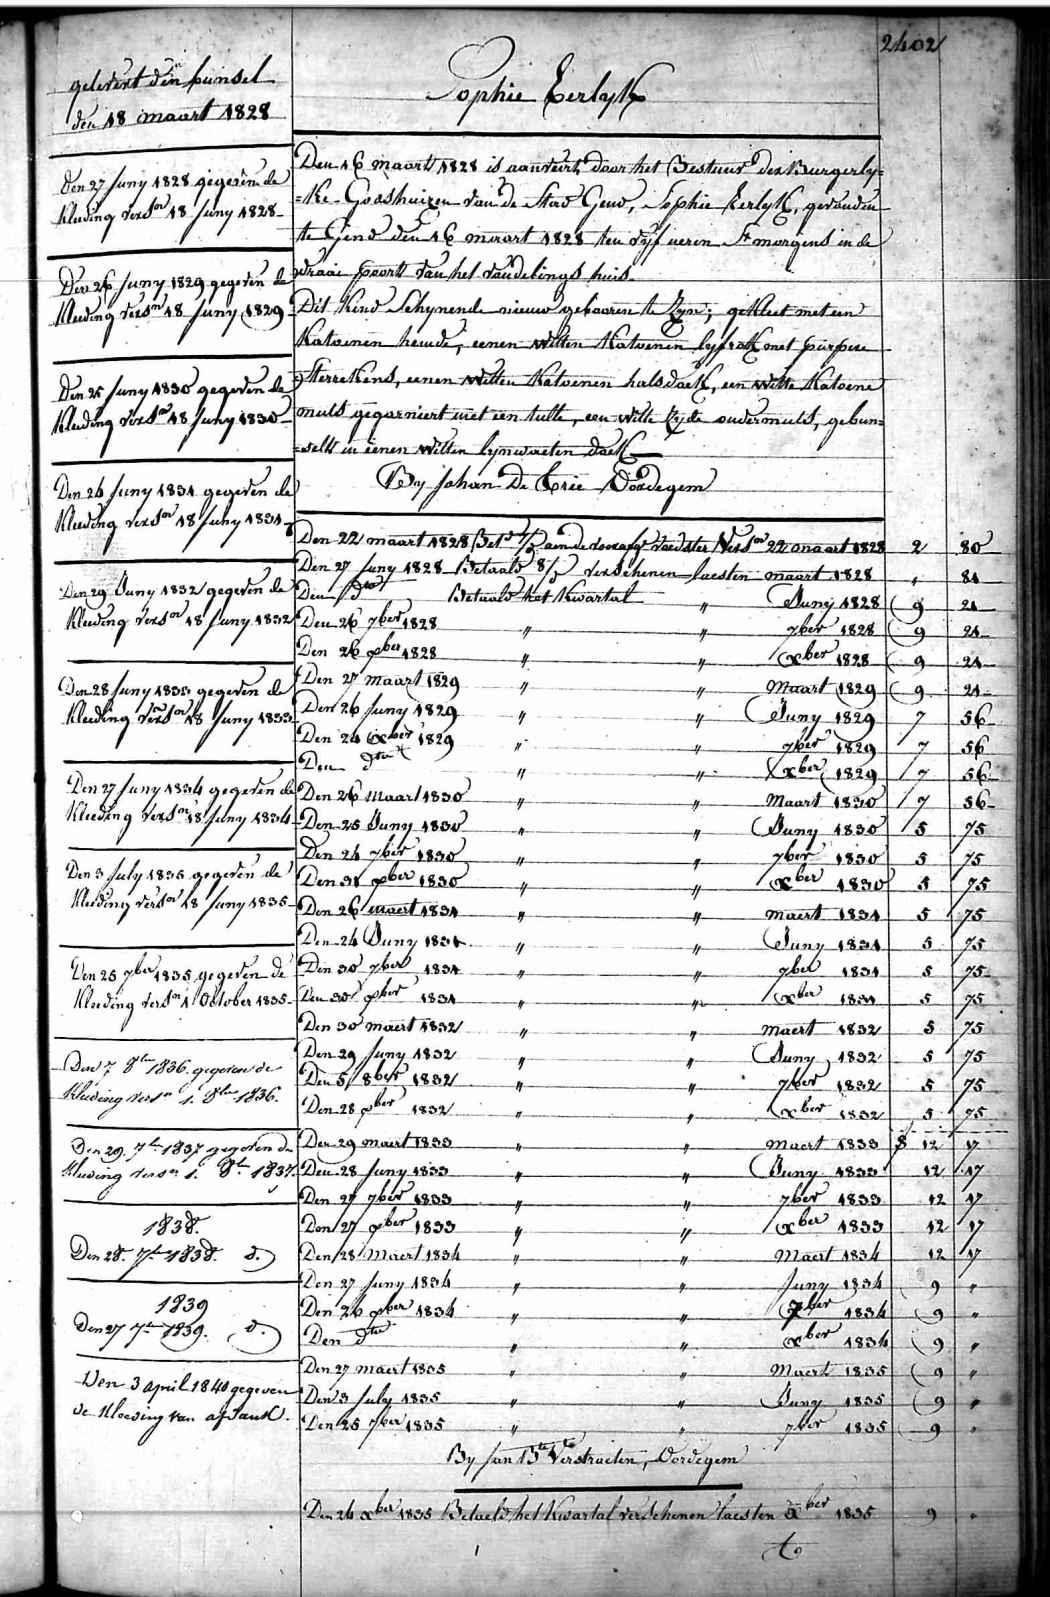 2402
gelevert den bunsel
den 18 maart 1828
Sophie Eerlyk
Den 27 Juny 1828 gegeven de
Kleeding versn 18 Juny 1828
Den 26 Juny 1829 gegeven de
Kleeding versn 18 Juny 1829
Den 25 Juny 1830 gegeven de
Kleeding versn 18 Juny 1830
Den 24 Juny 1831 gegeven de
Kleeding versn 18 Juny 1831
Den 29 Juny 1832 gegeven de
Kleeding versn 18 Juny 1832
Den 28 Juny 1833 gegeven de
Kleeding versn 18 Juny 1833
Den 27 Juny 1834 gegeven de
Kleeding versn 18 Juny 1834
Den 3 July 1835 gegeven de
Kleeding versn 18 Juny 1835
Den 25 7ber 1835 gegeven de
Kleeding versn 1 October 1835
Den 7 8ber 1836 gegeven de
Kleeding versn 1. 8ber 1836.
Den 29. 7ber 1837 gegeven de
Kleeding versn 1. 8ber 1837.
1838.
Den 28. 7ber 1838. d.
1839
Den 27 7ber 1839. d.
Den 3 april 1840 gegeven
de Kleeding van
Den 16 maart 1828 is aanveirt door het Bestuur der Burgerly=
=ke Godshuizen van de Stad Gend, Sophie Eerlyk, gevonden
te Gend den 16 maart 1828 ten vyf ueren S'morgens in de
draai poort van het vondelings huis.
Dit Kind Schynende nieuw gebooren te Zyn; gekleet met een
Katoenen hemde, eenen witten Katoenen lyfrok met purpere
Sterrekens, eenen witten Katoenen halsdoek, een witte Katoene
muts gegarniert met een tulle, een witte Zyde ondermuts, gebun=
=selt in eenen witten lynwaeten doek
By Johan De Brie Oordegem
Den 22 maart 1828 Bet aen de voorafge voedster Versn 22 maart 1828 2 80
Den 27 Juny 1828 Betaald verschenen laesten maart 1828 " 81
Den dto Betaald het Kwartal " Juny 1828 9 21
Den 26 7ber 1828 " " 7ber 1828 9 21
Den 26 xber 1828 " " xber 1828 9 21
Den 27 maart 1829 " " Maart 1829 9 21
Den 26 Juny 1829 " " Juny 1829 7 56
Den 24 xber 1829 " " 7ber 1829 7 56
Den dto " " xber 1829 7 56
Den 26 Maart 1830 " " Maart 1830 7 56
Den 25 Juny 1830 " " Juny 1830 5 75
Den 24 7ber 1830 " " 7ber 1830 5 75
Den 31 xber 1830 " " xber 1830 5 75
Den 26 maert 1831 " " maert 1831 5 75
Den 24 Juny 1831 " " Juny 1831 5 75
Den 30 7ber 1831 " " 7ber 1831 5 75
Den 30 xber 1831 " " xber 1831 5 75
Den 30 maert 1832 " " maert 1832 5 75
Den 29 Juny 1832 " " Juny 1832 5 75
Den 5 8ber 1832 " " 7ber 1832 5 75
Den 28 xber 1832 " " xber 1832 5 75
Den 29 maert 1833 " " Maert 1833 12 17
Den 28 Juny 1833 " " Juny 1833 12 17
Den 27 7ber 1833 " " 7ber 1833 12 17
Den 27 xber 1833 " " xber 1833 12 17
Den 28 Maert 1834 " " Maert 1834 12 17
Den 27 Juny 1834 " " Juny 1834 9 "
Den 26 xber 1834 " " 7ber 1834 9 "
Den dto " " xber 1834 9 "
Den 27 maert 1835 " " Maert 1835 9 "
Den 3 July 1835 " " Juny 1835 9 "
Den 25 7ber 1835 " " 7ber 1835 9 "
By Jan Bte Verstraeten, Oordegem
Den 24 xber 1835 Betaeld het Kwartal verschenen laesten xber 1835 9 "